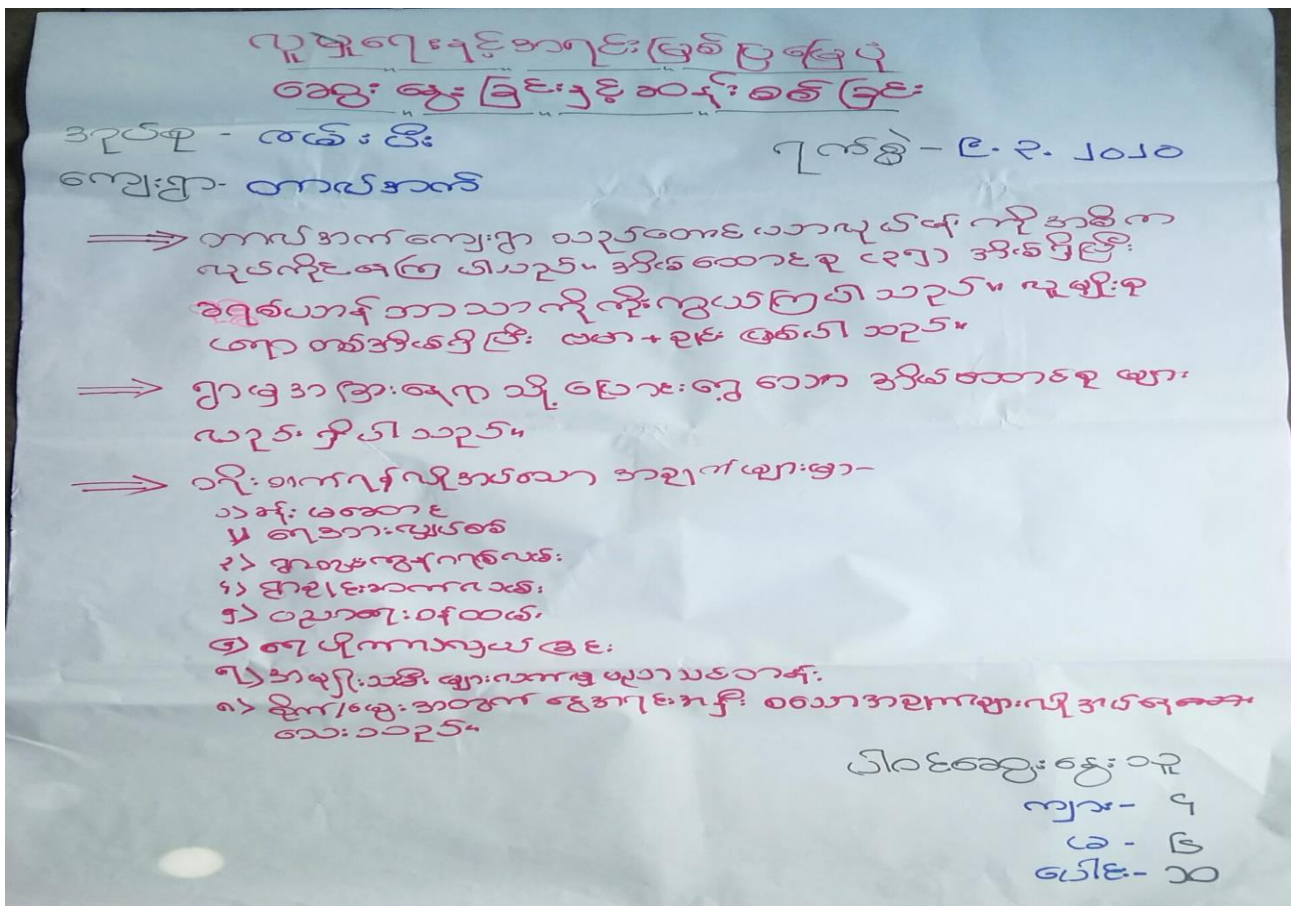 လူမှုရေးနှင့်အရင်းမြစ်ပြမြေပုံ
ဆွေးနွေးခြင်းနှင့်ဆန်းစစ်ခြင်း
အုပ်စု - လမ်းပီး
ရက်စွဲ - ၉. ၃. ၂၀၂၀
ကျေးရွာ - တာလ်အက်
⟹ တာလ်အက်ကျေးရွာ သည်တောင်ယာလုပ်ငန်း ကို အဓိက
လုပ်ကိုင်နေကြ ပါသည်။ အိမ်ထောင်စု (၃၅) အိမ်ရှိပြီး
ခရစ်ယာန်ဘာသာကိုကိုးကွယ်ကြပါသည်။ လူမျိုးစု
ရော တစ်အိမ်ရှိပြီး ဗမာ + ချင်း ဖြစ်ပါသည်။
⟹ ရွာမှအခြားနေရာသို့ ပြောင်းရွှေ့သော အိမ်ထောင်စုများ
လည်းရှိပါသည်။
⟹ ခရိုးတက်ရန်လိုအပ်သော အချက်များမှာ-
၁) နှီးမဆောင်
၂) ရေအားလျှပ်စစ်
၃) ရွာတွင်းကွန်ကရစ်လမ်း
၄) ရွာချင်းဆက်လမ်း
၅) ပညာရေးဝန်ထမ်း
၆) ရေပိုက်သွယ်ခြင်း
၇) အမျိုးသမီးများသက်မွေးပညာသင်တန်း
၈) စိုက်/မွေးအတွက် ငွေအရင်းအနှီး စသောအချက်များလိုအပ်နေ
သေးသည်။
ပါဝင်ဆွေးနွေးသူ
ကျား - ၄
မ - ၆
ပေါင်း - ၁၀